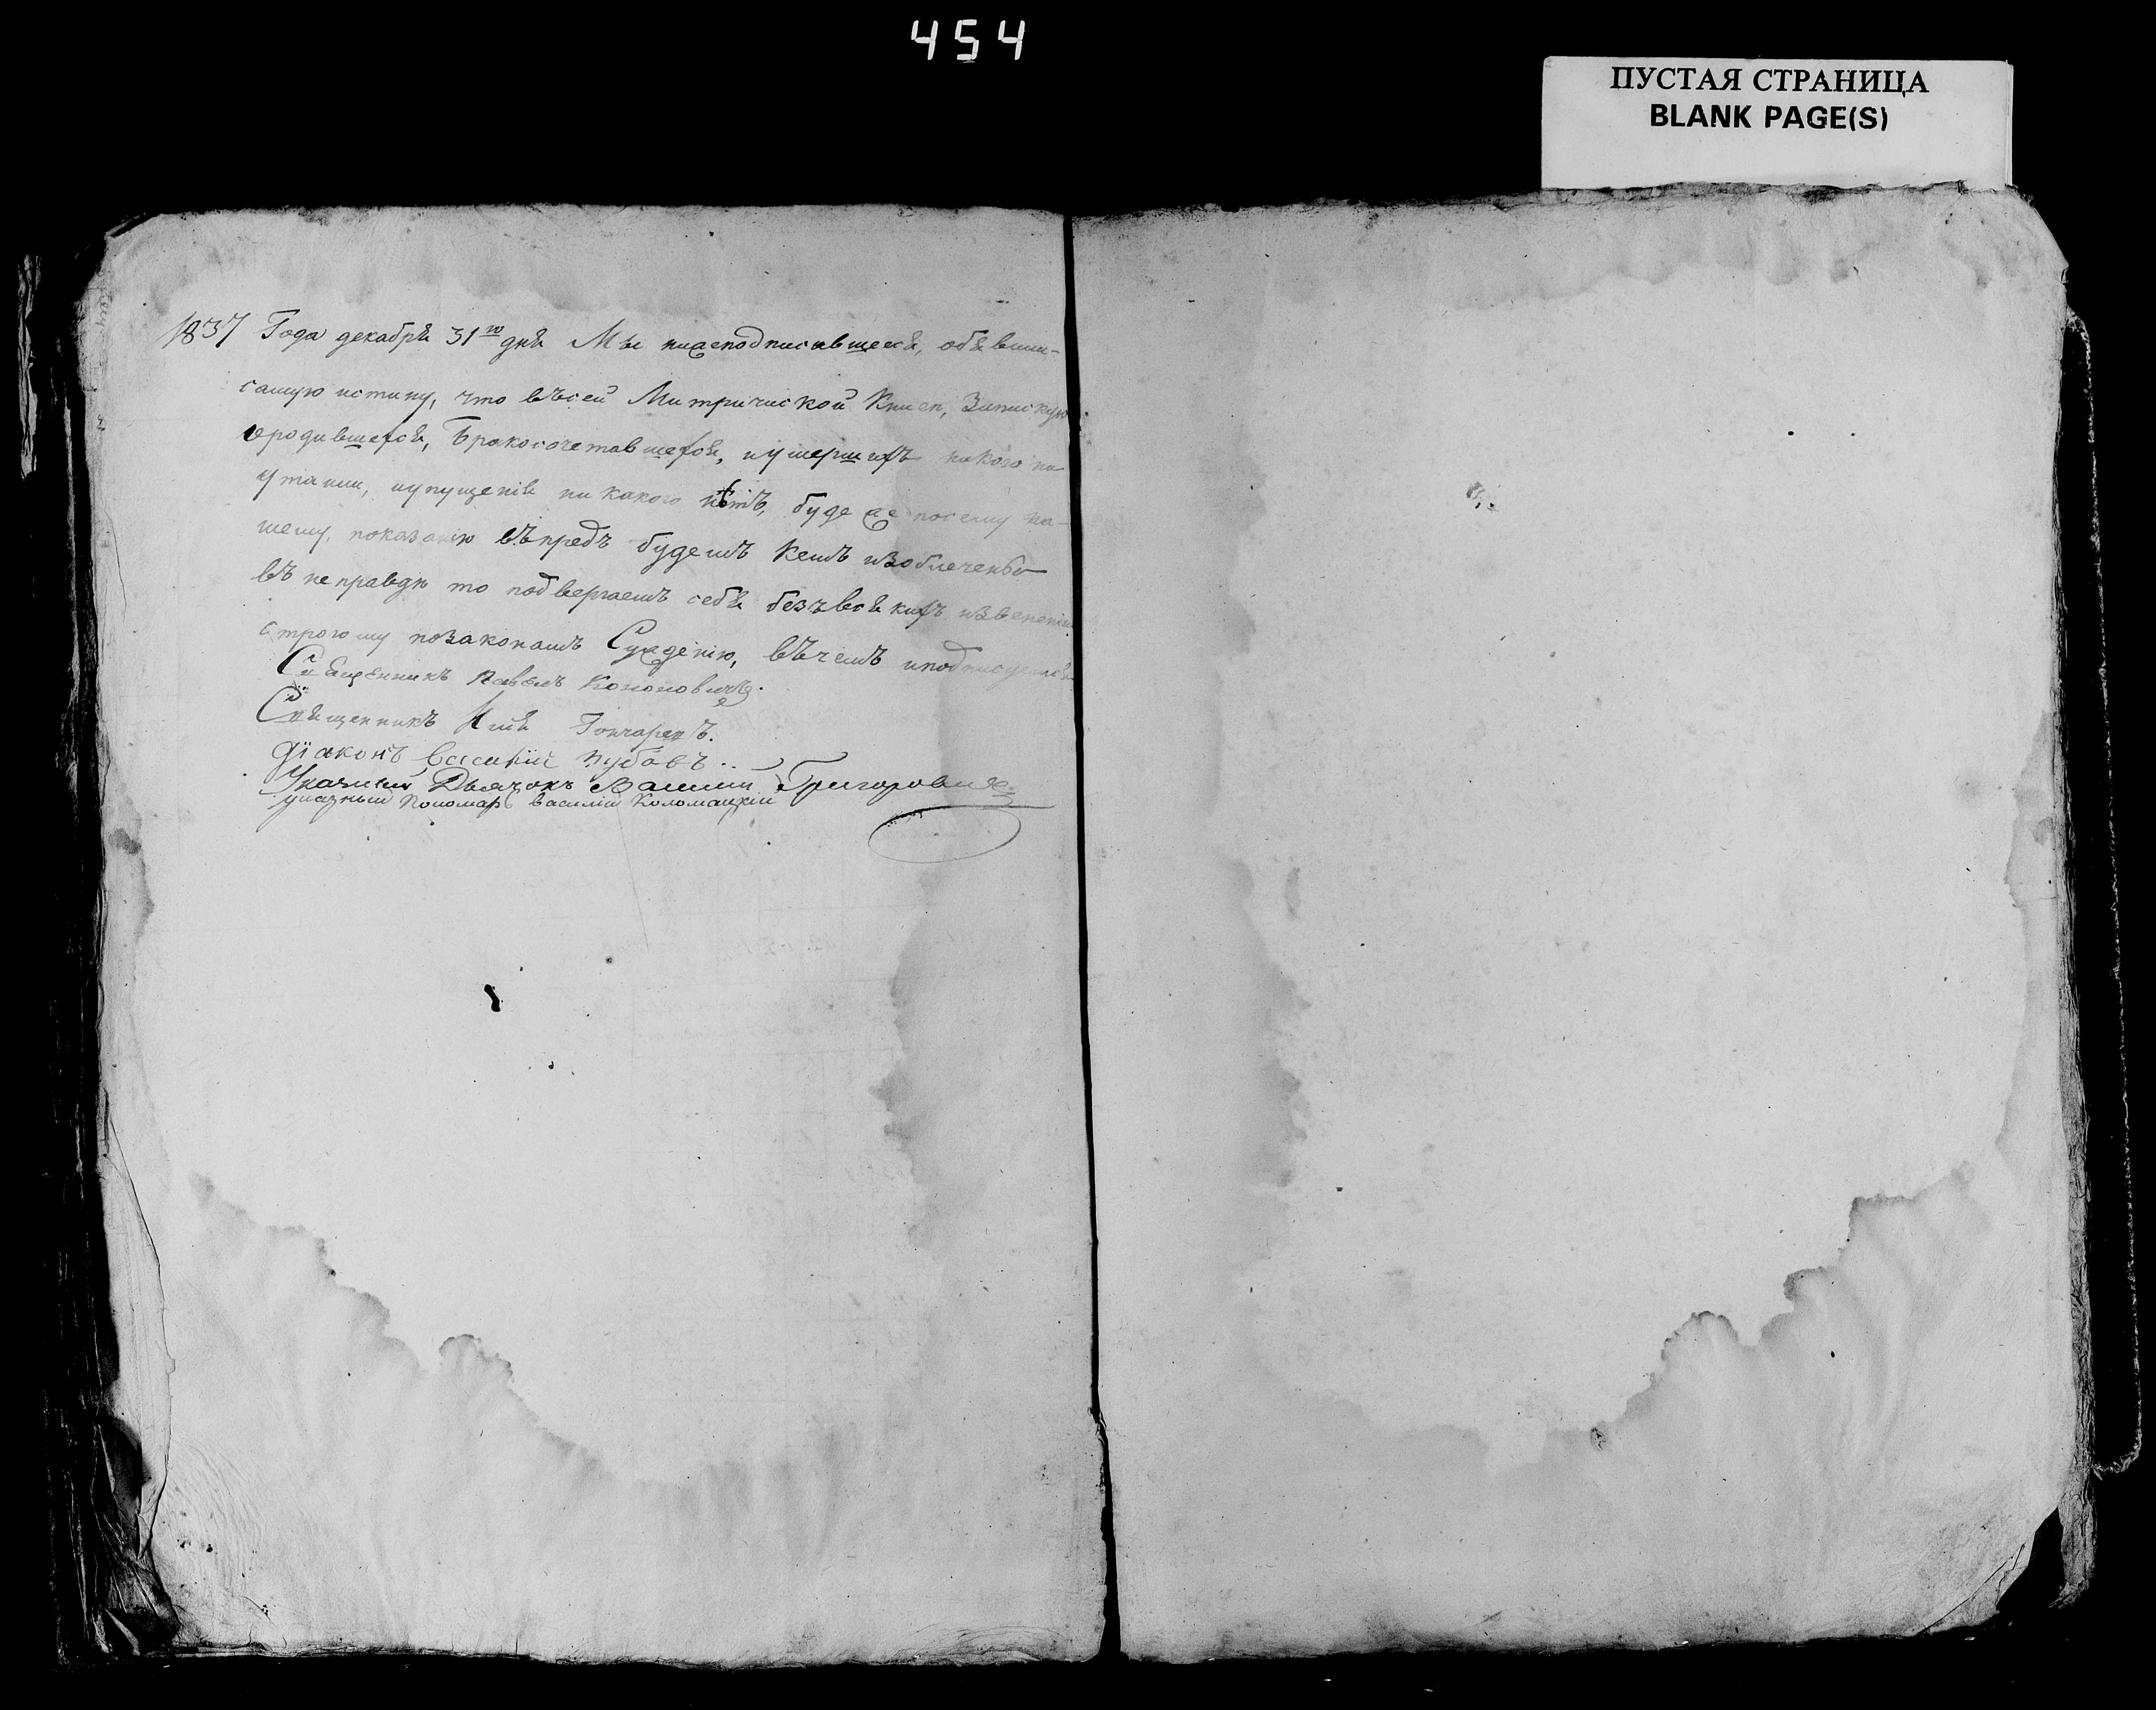 454
ПУСТАЯ СТРАНИЦА
BLANK PAGE(S)
1837 Года декабря 31го дня Мы нижеподписавшеся, объявили
самую истину, что въсей Митрической Книге, Записную
ородившехся, Бракосочетавшехся, иумершихъ никого не
утаили, иупущенія никакого нѣтъ, буде же посему на-
шему показанію въпредь будемъ кемъ изобличены
въ неправдѣ то подвергаемъ себя безъ всякихъ извененій
строгому позаконамъ Сужденію, въчемъ иподписуемся
Священникъ Павелъ Кононовичъ.
Священникъ Илія Гончаревъ.
Діаконъ Василій Зубовъ..
Указный Дьячокъ Василій Григоровичъ
указный Пономарь василій Коломацкій